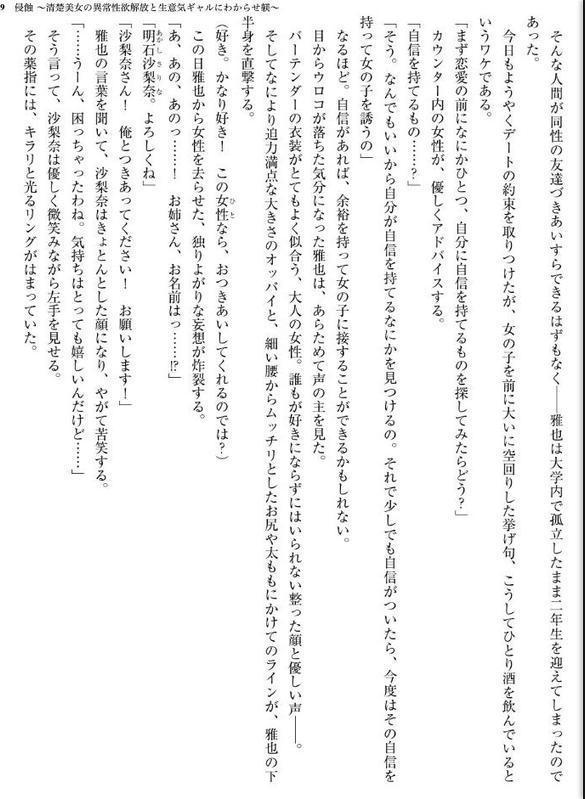 9 侵蝕 ～清楚美女の異常性欲解放と生意気ギャルにわからせ躾～
そんな人間が同性の友達づきあいすらできるはずもなく――　雅也は大学内で孤立したまま二年生を迎えてしまったので
あった。
今日もようやくデートの約束を取りつけたが、女の子を前に大いに空回りした挙げ句、こうしてひとり酒を飲んでいると
いうワケである。
「まず恋愛の前になにかひとつ、自分に自信を持てるものを探してみたらどう？」
カウンター内の女性が、優しくアドバイスする。
「自信を持てるもの……？」
「そう。なんでもいいから自分が自信を持てるなにかを見つけるの。それで少しでも自信がついたら、今度はその自信を
持って女の子を誘うの」
なるほど。自信があれば、余裕を持って女の子に接することができるかもしれない。
目からウロコが落ちた気分になった雅也は、あらためて声の主を見た。
バーテンダーの衣装がとてもよく似合う、大人の女性。誰もが好きにならずにはいられない整った顔と優しい声――。
そしてなにより迫力満点な大きさのオッパイと、細い腰からムッチリとしたお尻や太ももにかけてのラインが、雅也の下
半身を直撃する。
（好き。かなり好き！　この女性なら、おつきあいしてくれるのでは？）
この日雅也から女性を去らせた、独りよがりな妄想が炸裂する。
「あ、あの、あのっ……！　お姉さん、お名前はっ……⁉」
「明石沙梨奈。よろしくね」
「沙梨奈さん！　俺とつきあってください！　お願いします！」
雅也の言葉を聞いて、沙梨奈はきょとんとした顔になり、やがて苦笑する。
「……うーん、困っちゃったわね。気持ちはとっても嬉しいんだけど……」
そう言って、沙梨奈は優しく微笑みながら左手を見せる。
その薬指には、キラリと光るリングがはまっていた。